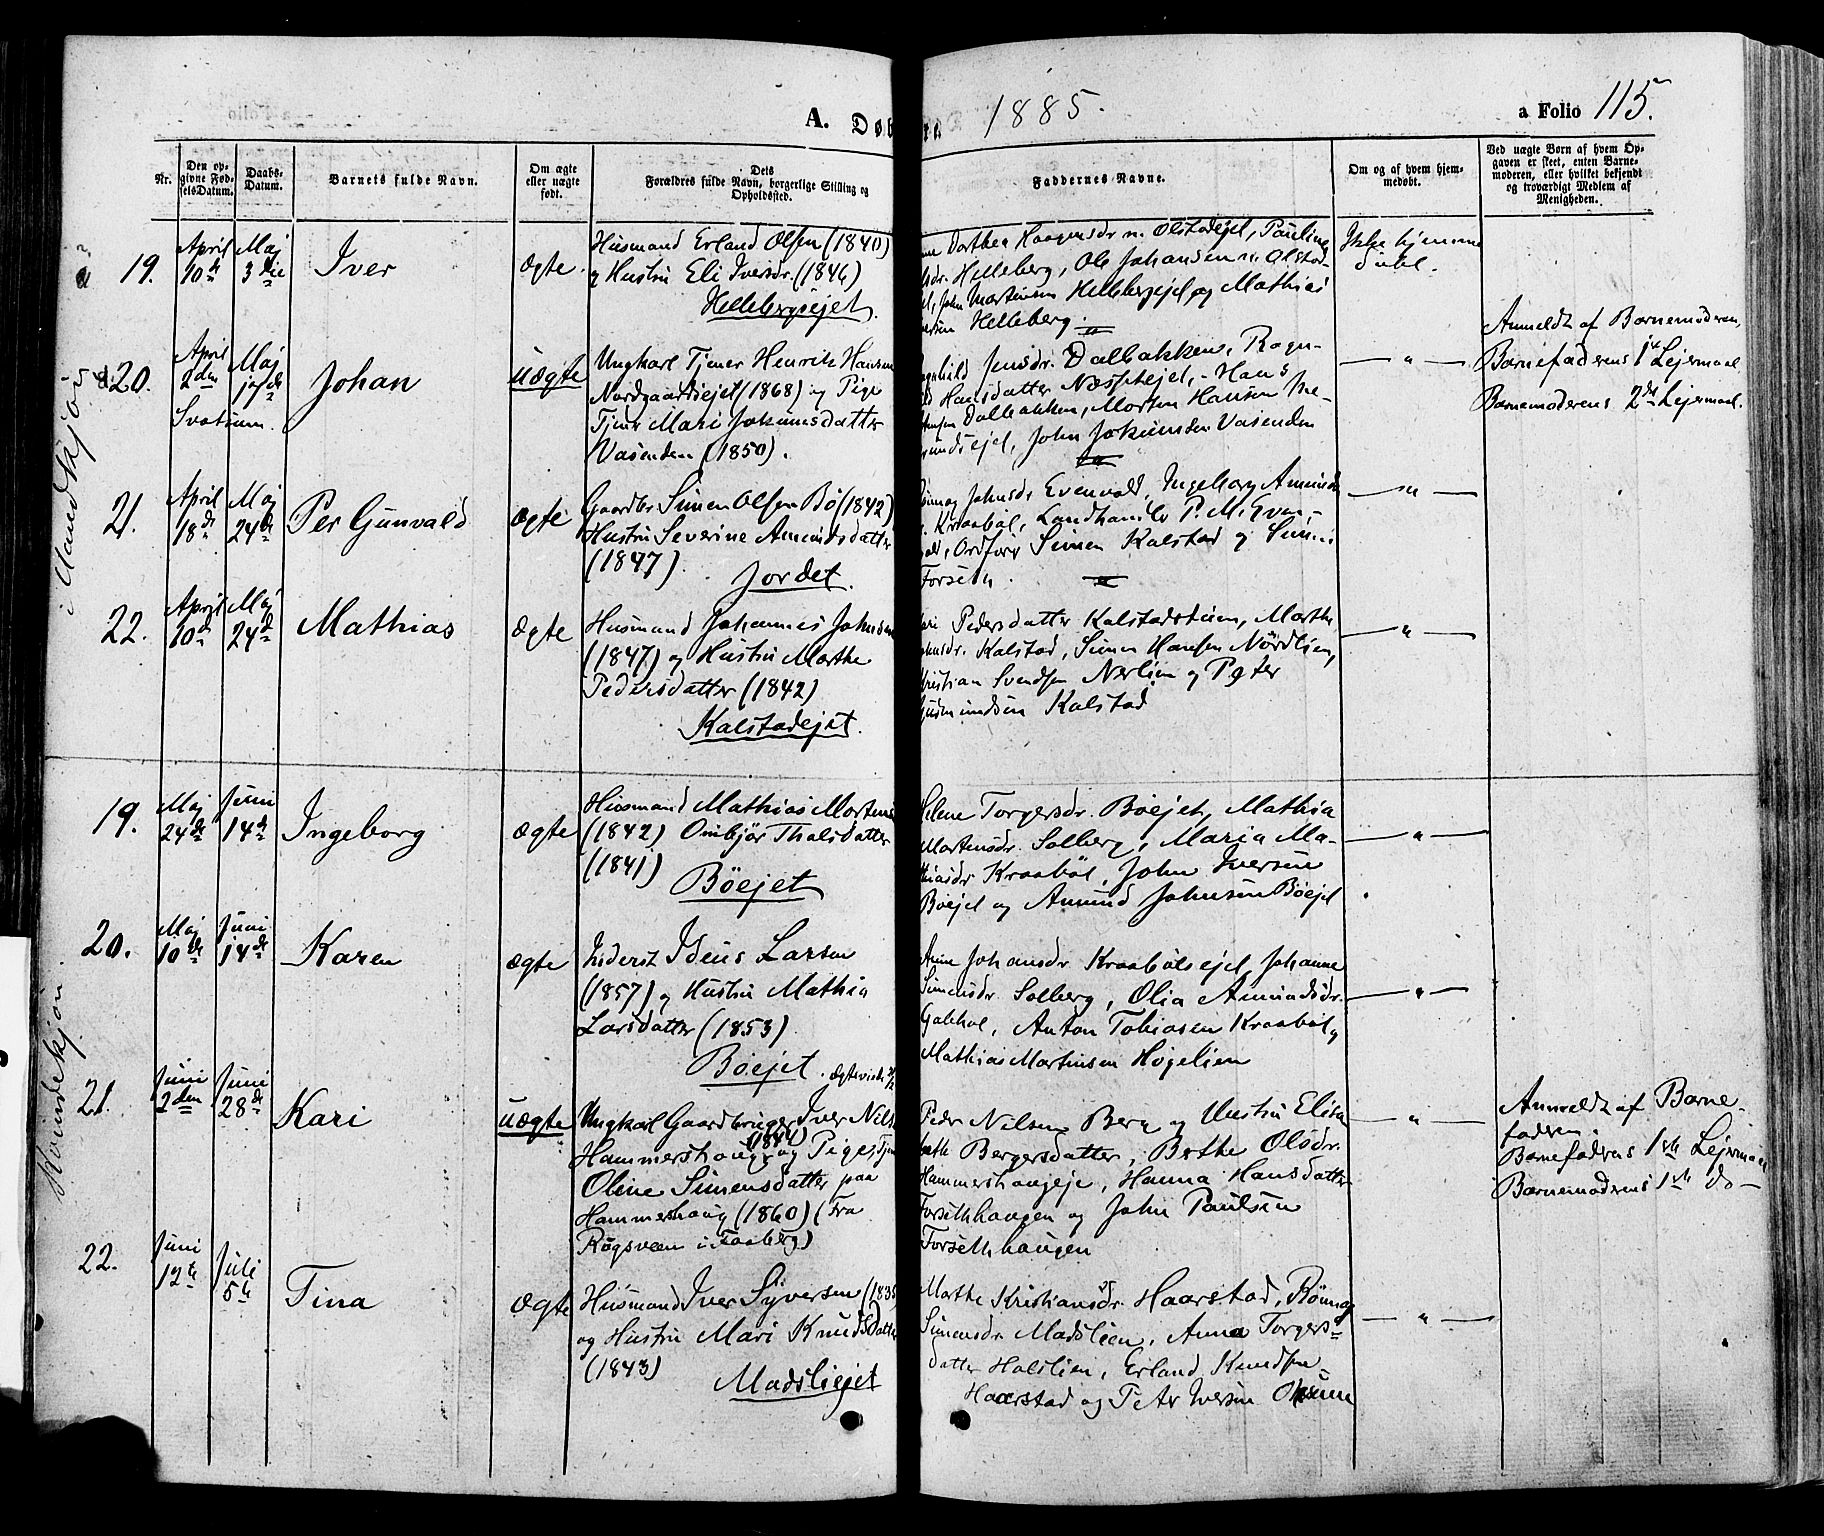 A. Døb
1885.
a Folio 115.
Nr.
Den op-
givne Fød-
selsDatum.
Daabs-
Datum.
Barnets fulde Navn.
Om ægte
eller uægte
født.
Dets
Forældres fulde Navn, borgerlige Stilling og
Opholdssted.
Faddernes Navne.
Om og af hvem hjem-
medøbt.
Ved uægte Børn af hvem Op-
gaven er skeet, enten Barne-
moderen, eller hvilket bekjendt
og troværdigt Medlem af
Menigheden.
Mandkjøn
19.
April
10de
Maj
3die
Iver
ægte.
Husmand Erland Olsen (1840)
og Hustru Eli Iversdr. (1846)
Hellebergsejet.
Dorthea Haagensdr n. Olstadejet, Pauline
Helleberg, Ole Johansen n. Olstad-
John Martinsen Hellebergejet og Mathias
Helleberg.
Ikke hjemme
døbt.
20.
April
2den
Svatsum.
Maj
17de
Johan
uægte
Ungkarl Tjener Henrik Hansen
Nordgaardsejet (1868) og Pige
Tjener Mari Jokumsdatter
Vasenden (1850).
Jensdr. Dalbakken, Ragn-
Hansdatter Næsshejet, Hans
Dalbakken, Morten Hansen
John Jokumsen Vasenden
— " —
Anmeldt af Barnemoderen,
Barnefaderens 1ste Lejermaal
Barnemoderens 2det Lejermaal.
21.
April
18de
Maj
24de
Per Gunvald
ægte
Gaardbr Simen Olsen Bø (1842)
Hustru Severine Amundsdatter
(1847)
Jordet.
Johnsdr Evenvold, Ingeborg Amundsdr
Kraabøl, Landhandler P. M. Even-
vold, Ordfører Simen Kalstad og Simen
Forseth.
— " —
22.
April
10de
Maj
24de
Mathias
ægte
Husmand Johannes Johnsen
(1847) og Hustru Marthe
Pedersdatter (1842)
Kalstadejet.
Pedersdatter Kalstadstuen, Marthe
Kalstad, Simen Hansen Nordlien,
Kristian Svendsen Nerlien og Peter
Gudmundsen Kalstad
— " —
Kvindekjøn
19.
Maj
24de
Juni
14de
Ingeborg
ægte
Husmand Mathias Mortens
(1842) Ombjør Thalsdatter
(1841)
Bøejet
Helene Torgersdr. Bøejet, Mathia
Mortensdr. Solberg, Maria Ma-
thiasdr Kraabøl, John Iversen
Bøejet og Amund Johnsen Bøejet
— " —
20.
Maj
10de
Juni
14de
Karen
ægte
Inderst Ideus Larsen
(1857) og Hustru Mathia
Larsdatter (1853)
Bøejet.
Anne Johansdr. Kraabølsejet, Johanne
Simensdr. Solberg, Olia Amundsdr.
Anton Tobiasen Kraabøl,
Mathias Martinsen Høgelien
— " —
21.
Juni
2den
Juni
28de
Kari
uægte
Ungkarl Gaardbruger Iver Nils
Hammershaug og Pige, Tjen
Oline Simensdatter paa
Hammershaug (1860) (Fra
Røgsveen i Faaberg)
Peder Nilsen Berg og Hustru Elisa-
beth Bergersdatter, Berthe Olsdr.
Hammershaugeje, Hanna Hansdatter
Forsethhaugen og John Paulsen
Forsethhaugen
— " —
Anmeldt af Barne-
faderen.
Barnefaderens 1ste Lejermaal
Barnemoderens 1ste do
22.
Juni
12te
Juli
5te
Tina
ægte
Husmand Iver Syversen (1838)
og Hustru Mari Knudsdatter
(1843)
Madsliejet
Mathe Kristiansdr. Haarstad, Rønnog
Simensdr. Madslien, Anna Torgers-
datter Holslien, Erland Knudsen
Haarstad og Peter Iversen
— " —